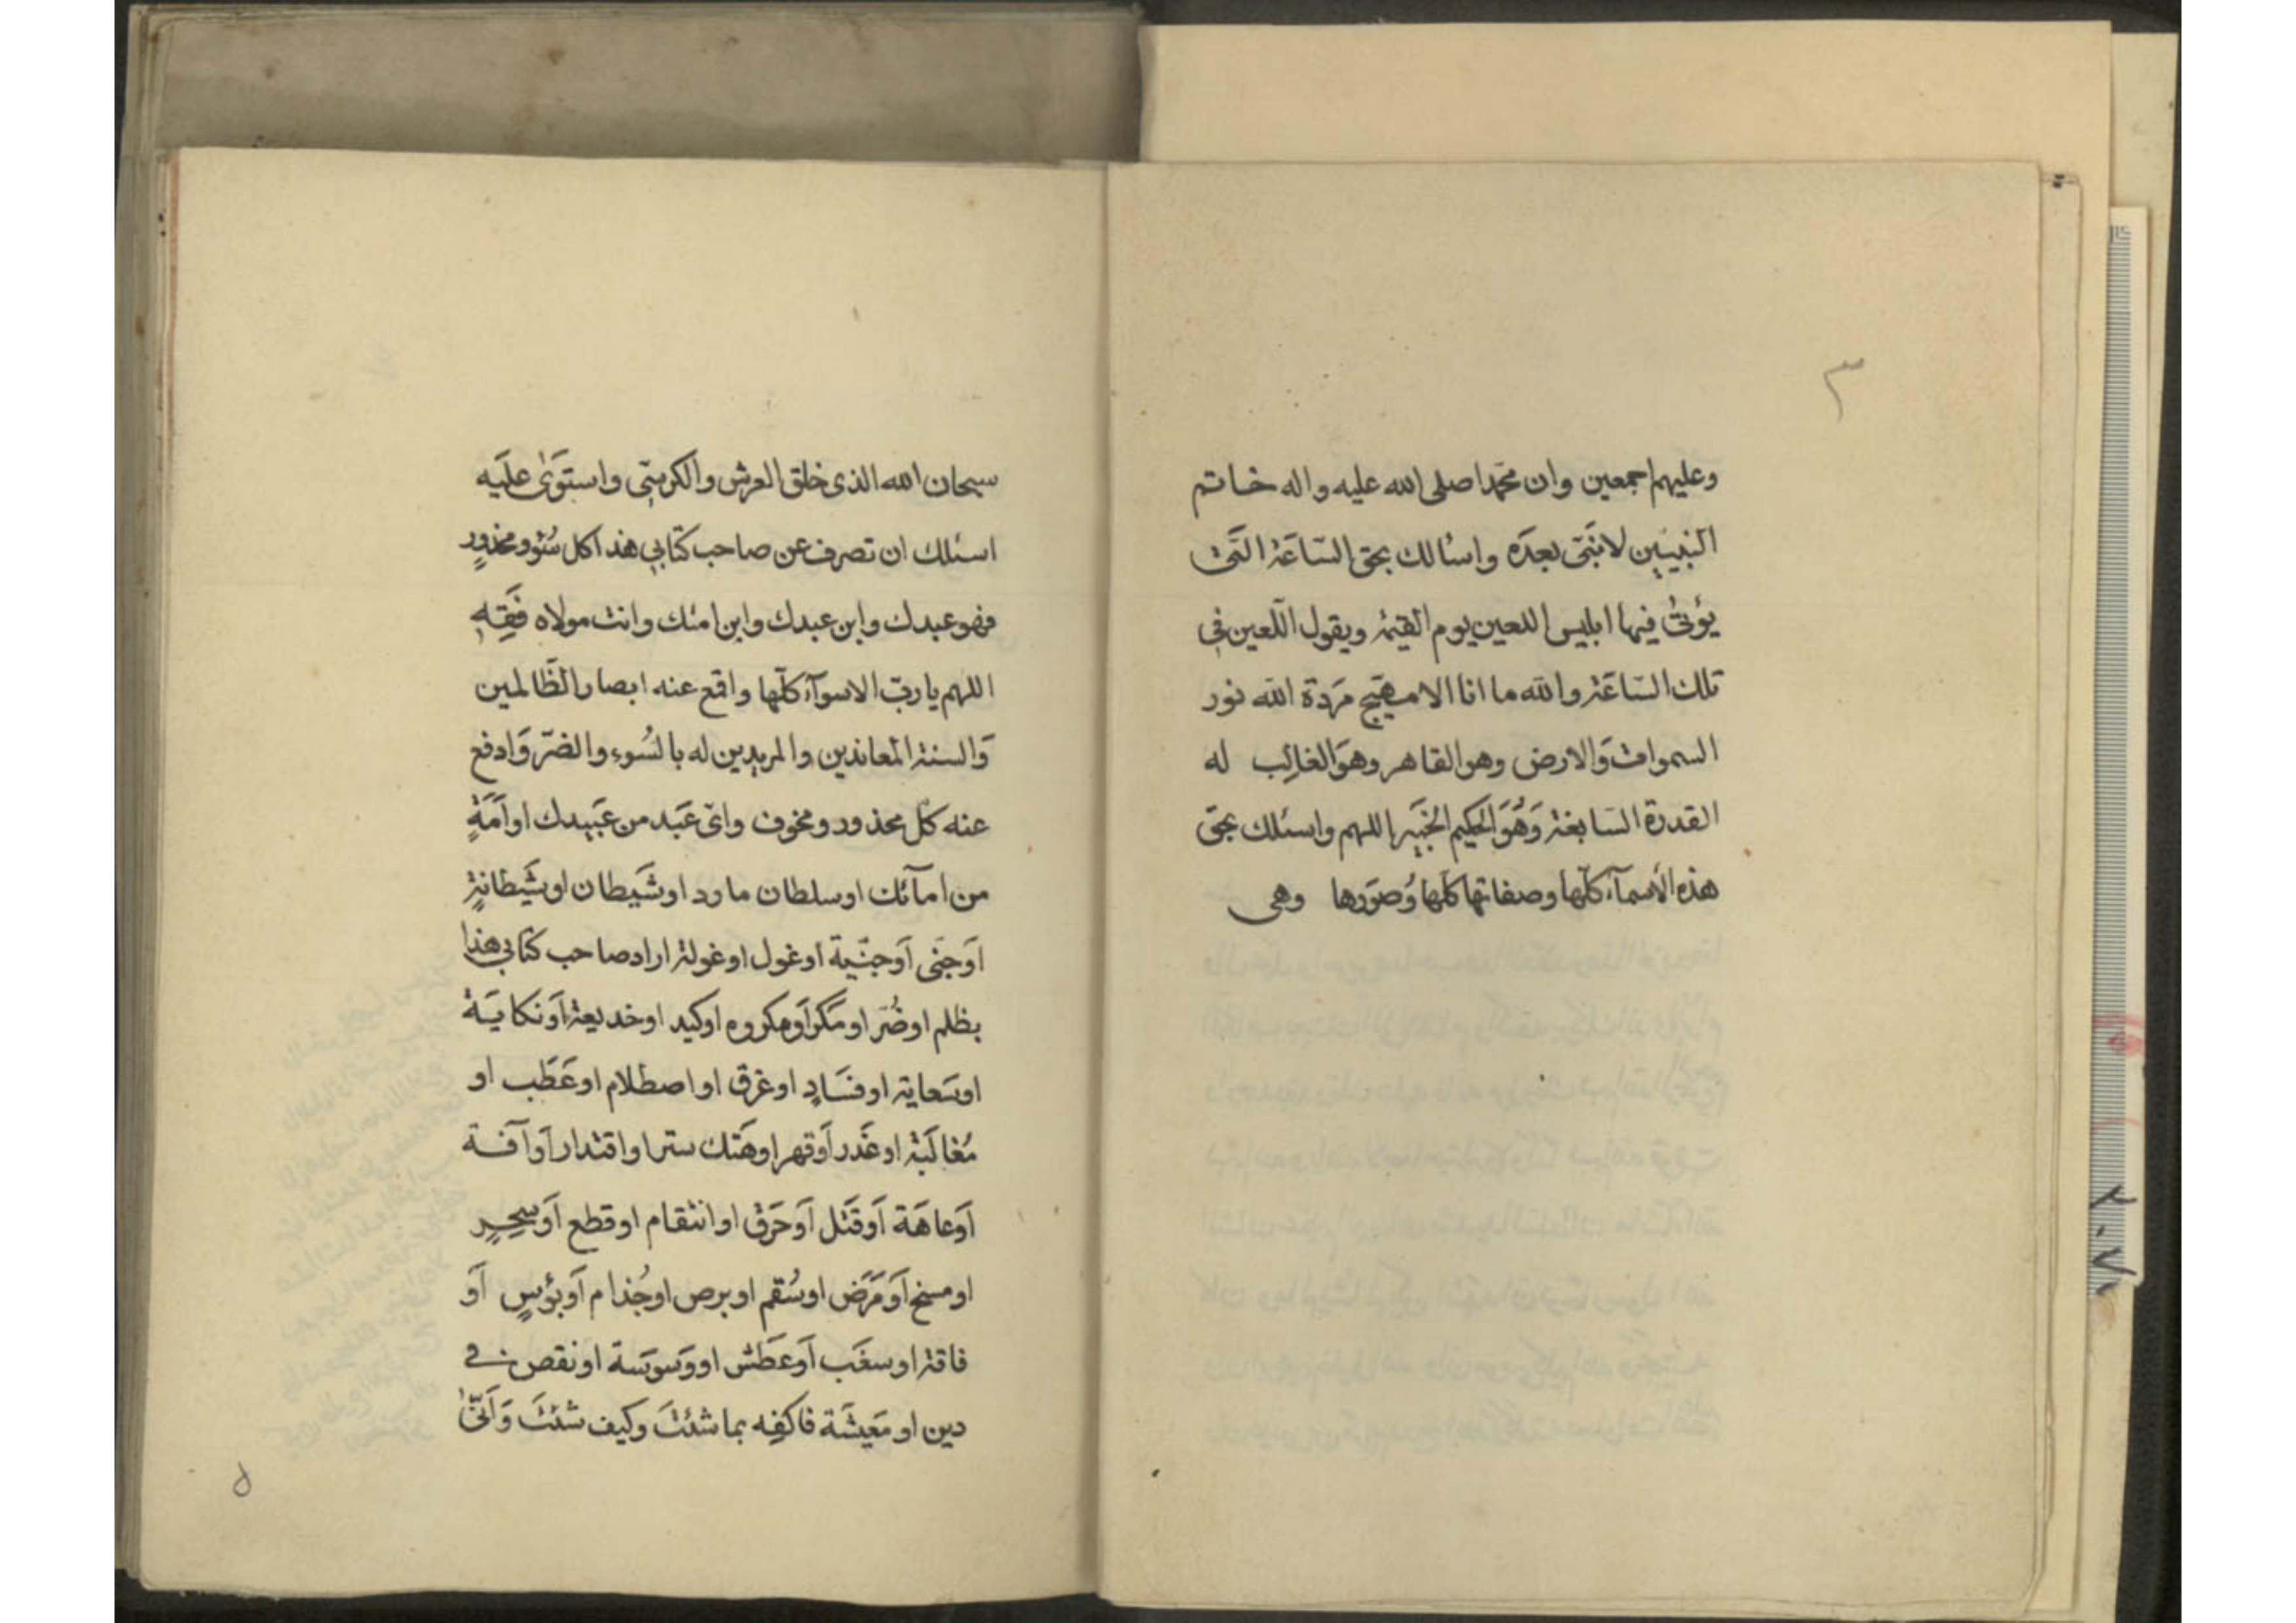 ٣
وعليهم اجمعين وان محمّدا صلى الله عليه واله خاتم
النّبيّين لا نبىّ بعدَه واسئالك بحق السّاعَة الّتى
يؤتىُ فيها ابليس اللعين يوم القيمَة ويقول اللّعين فى
تلك السّاعَة والله ما انا الا مهيّج مَردَة الله نور
السموات وَالارض وهو القاهر وهوَ الغالِب له
القدرة السّابغة وَهُوَ الحكيم الخَبير اللهم واسئلك بحق
هذه الأسمآء كلّها وصفاتها كلّها وُصوَرها وهى
سبحان الله الذى خلق العرش والكرسىّ واستوَىٰ علَيه
اسئلك ان تصرف عن صاحب كتابى هذا كل سُوء ومحذورٍ
فهو عبدك وابن عبدك وابن امتك وانت مولاه فَقِهِ
اللهم يا ربّ الاسوآء كلّها واقمع عنه ابصار الظّالمين
وَالسنة المعاندين والمريدين له بالسُوء والضرّ وَادفع
عنه كلّ محذور ومخوف واىّ عَبَد من عَبيدك او اَمَةٍ
من امآئك او سلطان مارد او شَيطان او شَيطانةٍ
اَو جنّى اَو جنّية او غول او غولة اراد صاحب كتابى هذا
بظلم او ضُرّ او مَكر اَو مكروه او كيد او خديعة اَو نكايَة
او سَعاية او فسَادٍ او غرق او اصطلام او عَطَب او
مُغالَبَة او غَدر اَو قهر او هَتك ستر او اقتدار اَو آفة
اَو عاهَة اَو قَتل اَو حَرَق او انتقام او قطع اَو سِحرٍ
او مسخ اَو مَرَض او سُقم او برص او جُذام اَو بؤسٍ اَو
فاقة او سغَب اَو عَطَش او وَسوَسة او نقص فى
دين او مَعيشَة فاكفِه بما شئتَ وكيف شئتَ وَاَنّىٰ
٥
٢٠٧